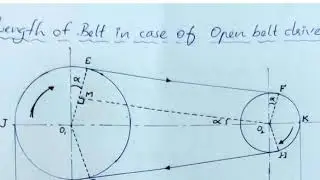 Length of Belt in case of Open belt drive
E
α
M
F
α
J
O₁
α
O₂
K
H